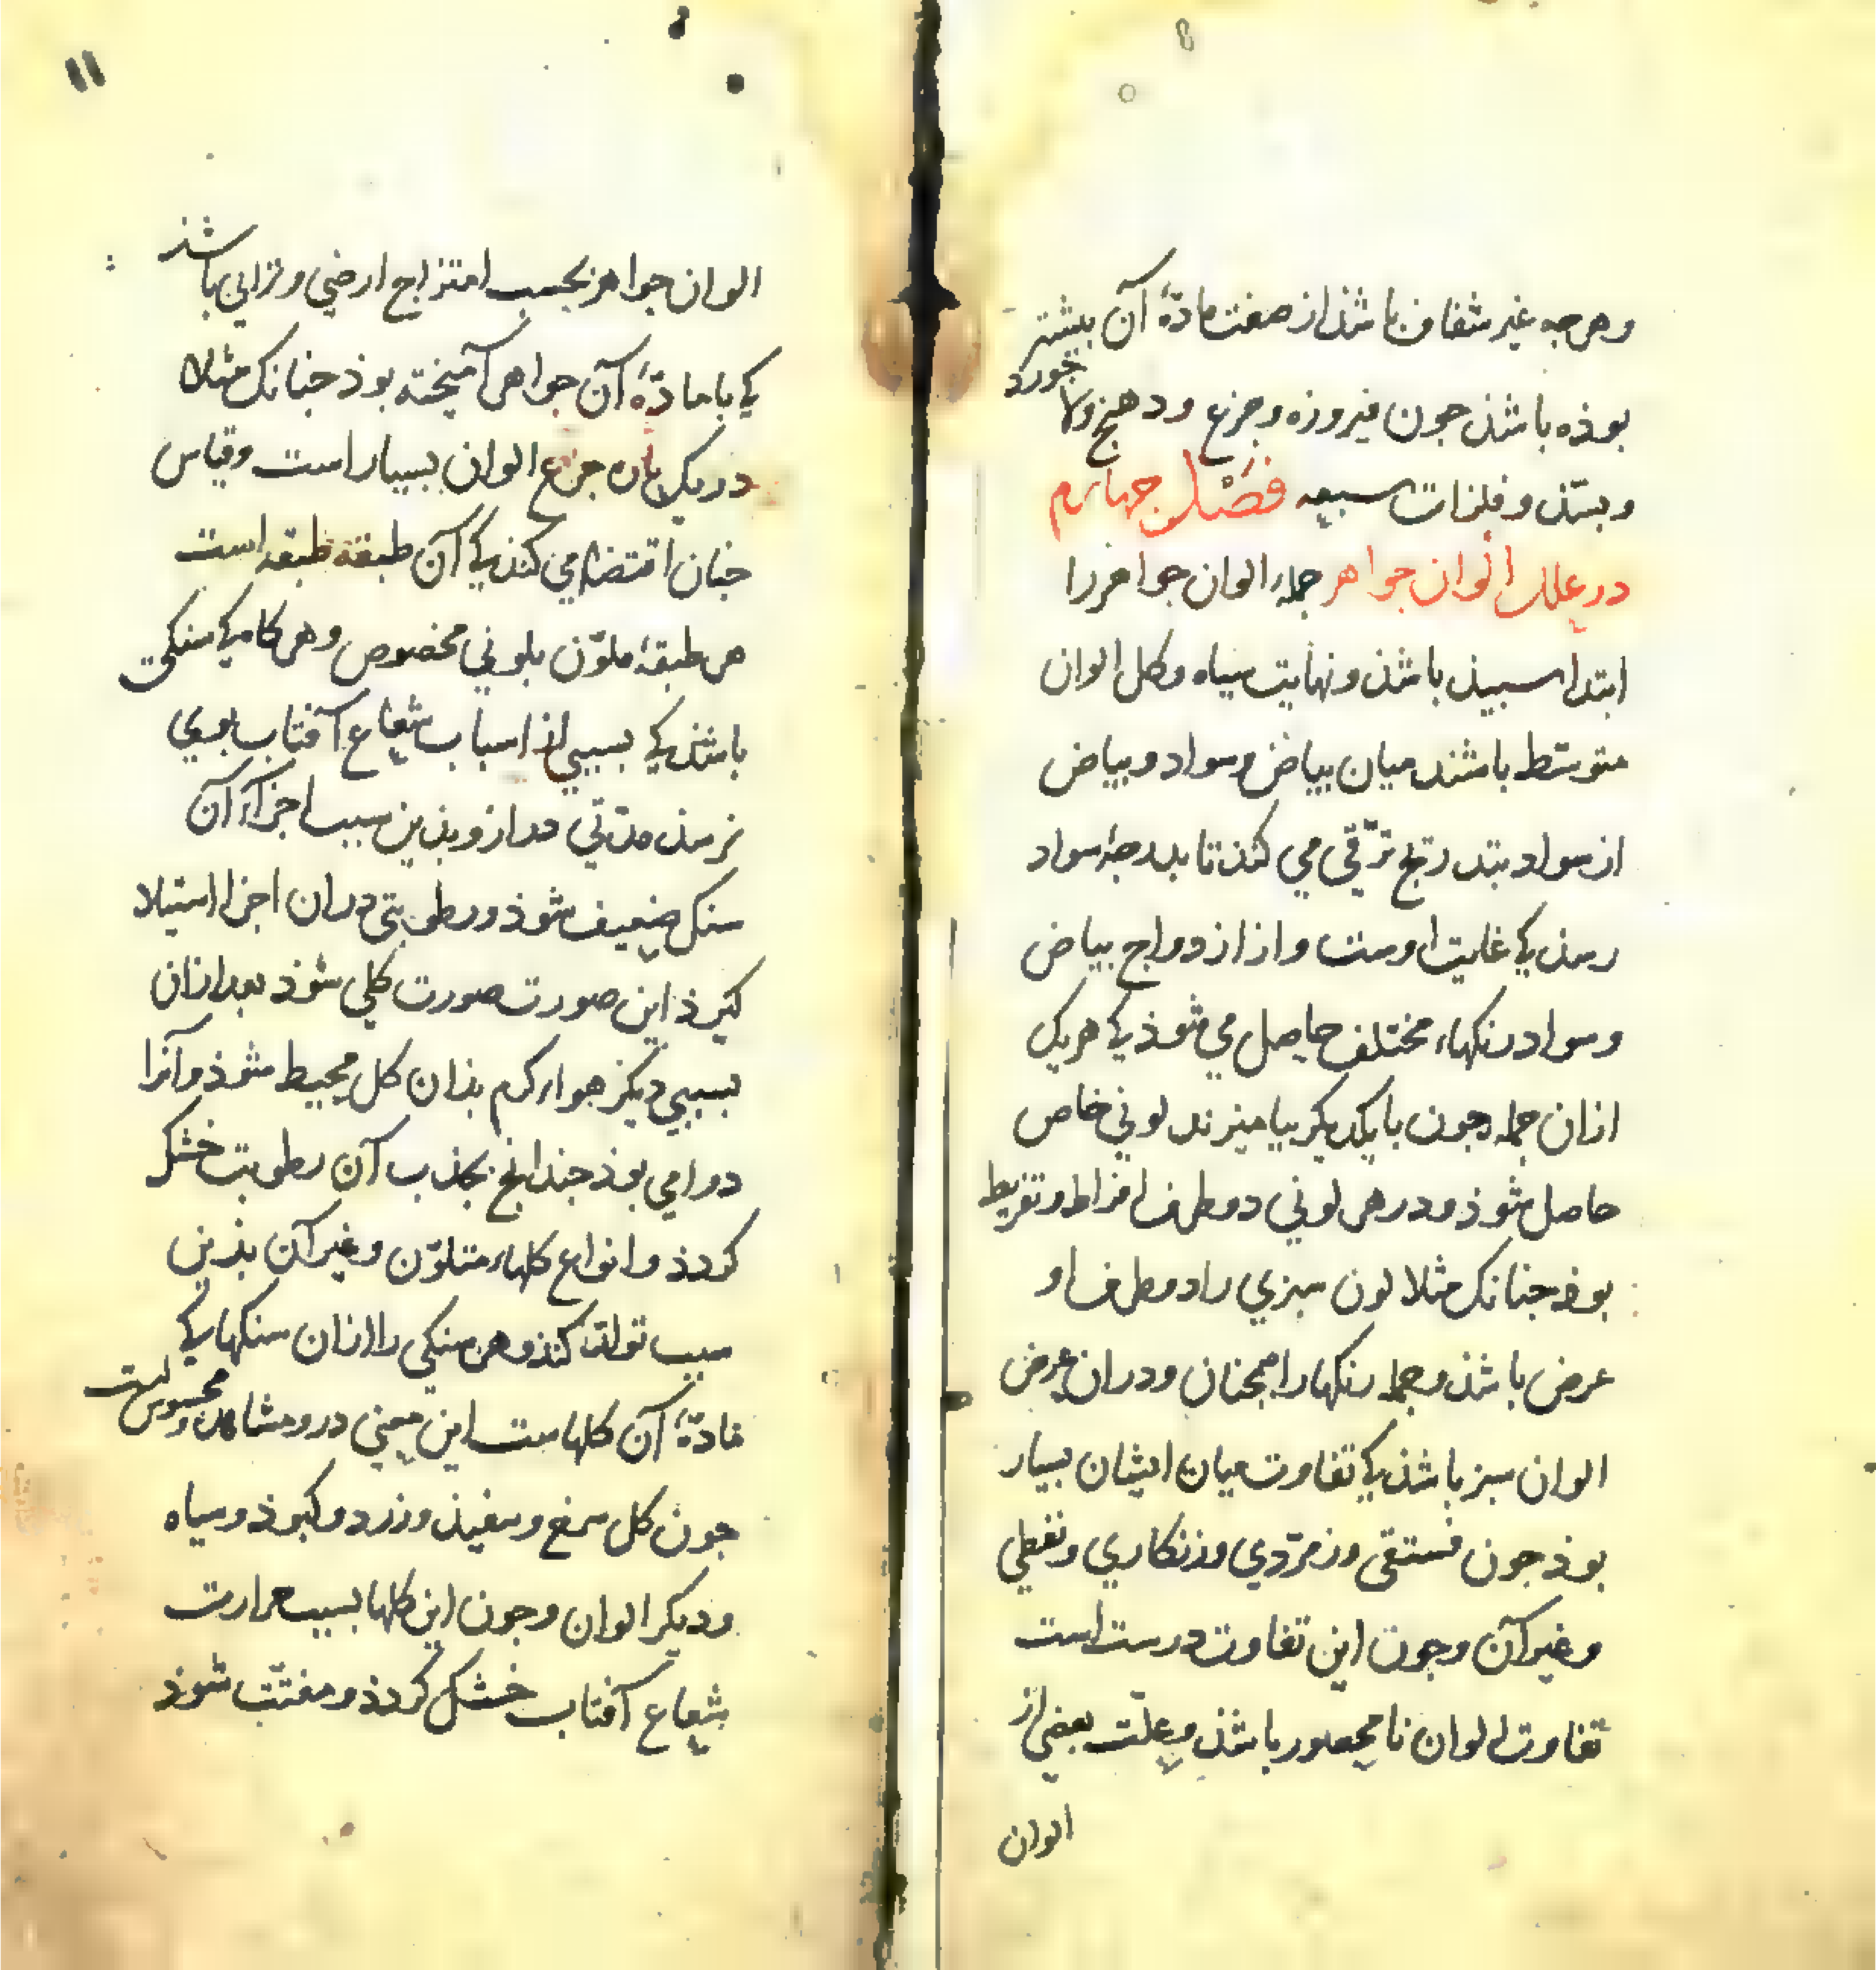 وهرجه غیر شفاف باشذ از صفت مادّهٔ آن بیشتر
بوذه باشذ جون فیروزه وجزع ودهنج ولاجورد
وبسّذ وفلزات سبعه فصل جهارم
در علل الوان جواهر جمله الوان جواهر را
ابتدا سبیذ باشذ ونهایت سیاه وکل الوان
متوسّط باشند میان بیاض وسواد وبیاض
از سواد بتدریج ترّقی می کند تا بدرجهٔ سواد
رسذ کی غایت اوست واز ازدواج بیاض
وسواد رنکهاء مختلف حاصل می شوذ کی هریک
ازان جمله جون بایکدیکر بیامیزند لونی خاص
حاصل شوذ ودر هر لونی دو طرف افراط وتفریط
بوذ جنانک مثلا لون سبزی را دو طرف او
عرض باشذ وجمله رنکها را همجنان ودران عرض
الوان سبز باشذ کی تفاوت میان ایشان بسیار
بوذ جون فستقی وزمرّدی وزنکاری ونفطی
وغیر آن وجون این تفاوت درست است
تفاوت الوان نامحصور باشذ وعلّت بعضی از
الوان
١١
الوان جواهر بحسب امتزاج ارضی وترابی باشذ
کی با مادّهٔ آن جواهر آمیخته بوذ جنانک مثلا
در یک باره جزع الوان بسیار است وقیاس
جنان اقتضا می کند کی آن طبقه طبقه است
هر طبقهٔ ملوّن بلونی مخصوص وهرکاه کی سنکی
باشذ کی بسببی از اسباب شعاع آفتاب بوی
نرسذ مدّتی دراز وبذین سبب اجزاء آن
سنک ضعیف شوذ ورطوبتی دران اجزا استیلا
کیرذ این صورت صورت کلی شوذ بعد ازان
بسببی دیکر هواء کرم بذان کل محیط شوذ وآنرا
دوامی بوذ جندانج بجذب آن رطوبت خشک
کردذ وانواع کلهاء متلوّن وغیر آن بذین
سبب تولّد کند وهر سنکی را ازان سنکها کی
مادّهٔ آن کلهاست این معنی درو مشاهد ومحسوس است
جون کل سرخ وسفیذ وزرد وکبوذ وسیاه
ودیکر الوان وجون این کلها بسبب حرارت
شعاع آفتاب خشک کردذ ومفتّت شوذ